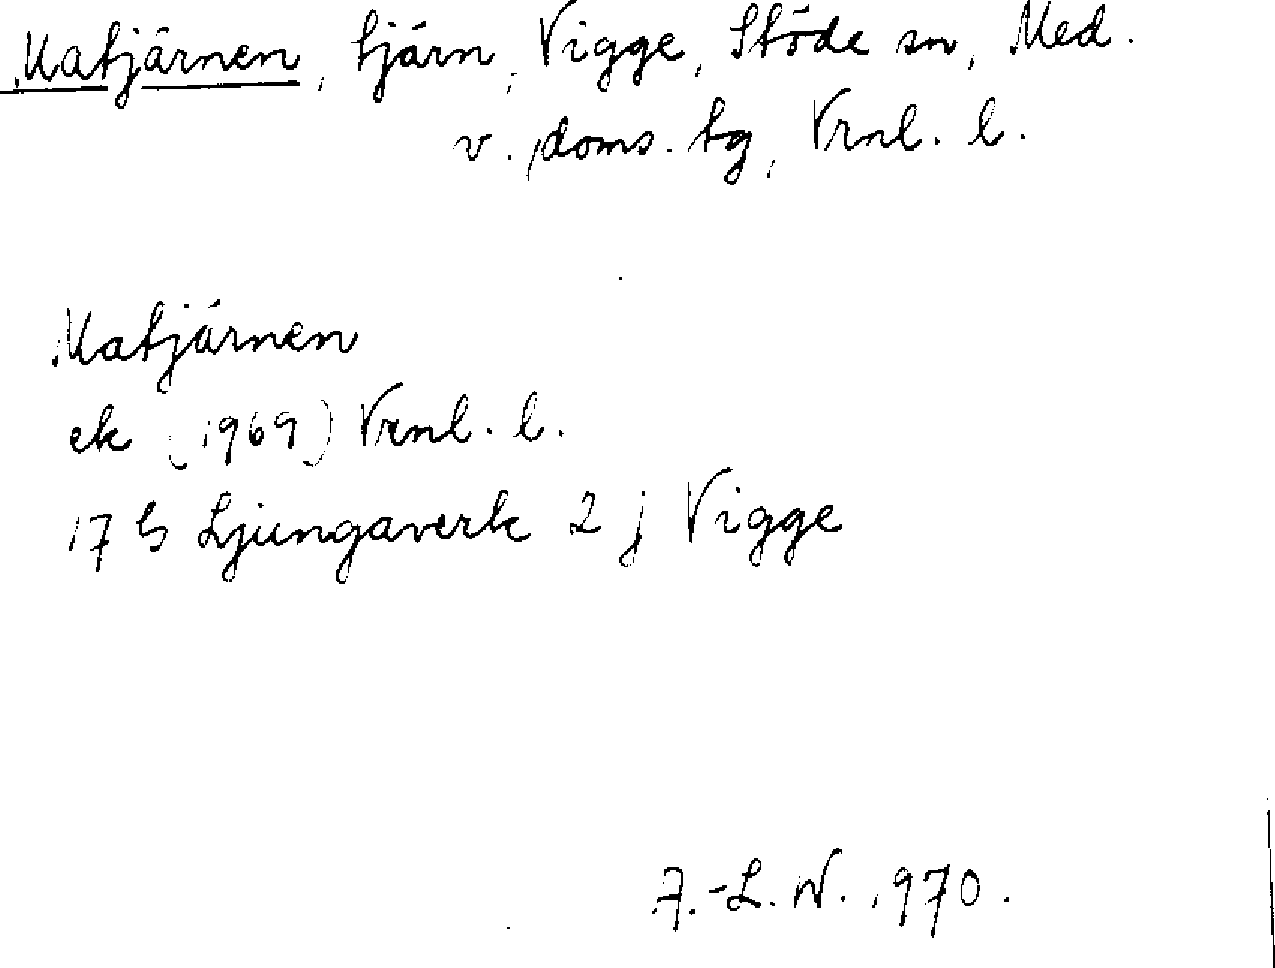 Matjärnen, tjärn, Vigge, Stöde sn, Med.
v. doms. tg, Vrnl. l.
Matjärnen
ek (1969) Vrnl. l.
17 G Ljungaverk 2 j Vigge
A.-L. N. 1970.